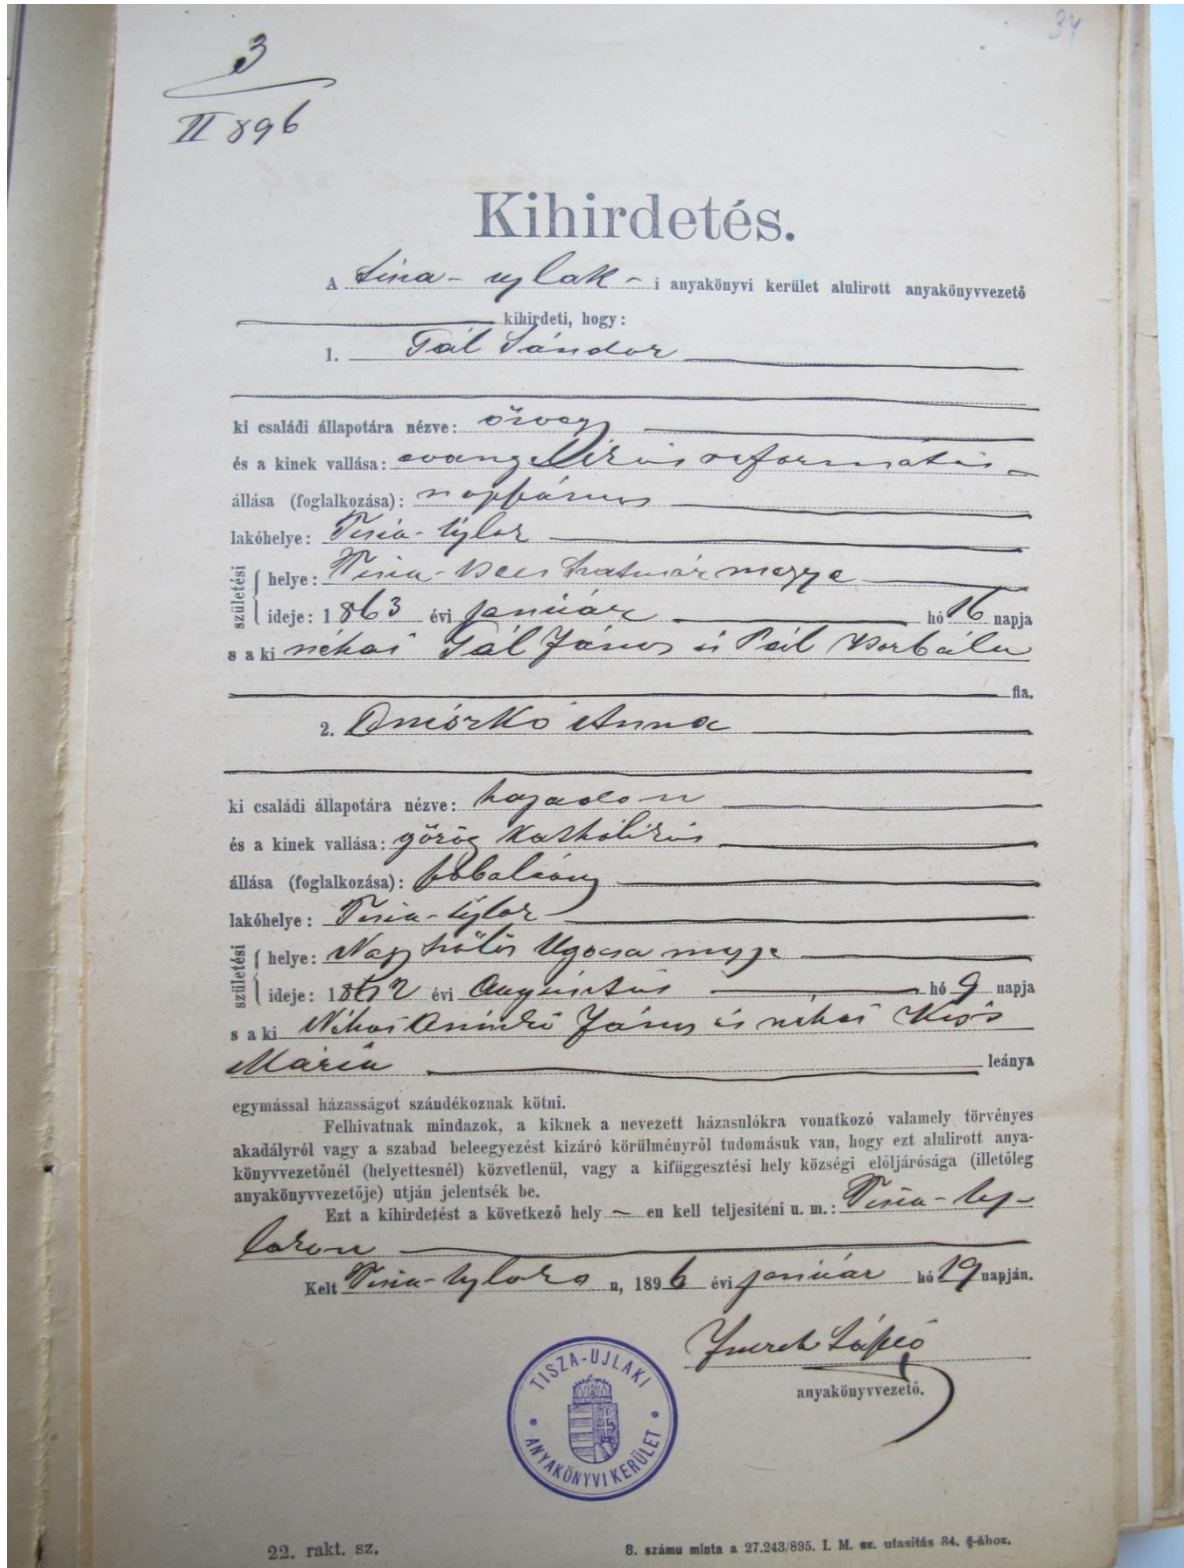 34
3
II 896
Kihirdetés.
A Tisza-ujlak-i anyakönyvi kerület alulirott anyakönyvvezető
kihirdeti, hogy:
1. Gál Sándor
ki családi állapotára nézve: özvegy
és a kinek vallása: evangelikus reformatus
állása (foglalkozása): napszámos
lakóhelye: Tisza-Ujlak
születési
helye: Tisza-Becs Szatmár megye
ideje: 1863 évi január hó 16 napja
s a ki néhai Gál János és Pál Borbála
fia.
2. Anna
ki családi állapotára nézve: hajadon
és a kinek vallása: görög katholikus
állása (foglalkozása): szobaleány
lakóhelye: Tisza-Ujlak
születési
helye: Nagy Szőlős Ugocsa megye
ideje: 18 2 évi Augusztus hó 9 napja
s a ki Néhai János és néhai Kiss
Mária leánya
egymással házasságot szándékoznak kötni.
Felhivatnak mindazok, a kiknek a nevezett házasulókra vonatkozó valamely törvényes
akadályról vagy a szabad beleegyezést kizáró körülményről tudomásuk van, hogy ezt alulirott anya-
könyvvezetőnél (helyettesnél) közvetlenül, vagy a kifüggesztési hely községi előljárósága (illetőleg
anyakönyvvezetője) utján jelentsék be.
Ezt a kihirdetést a következő hely – en kell teljesiteni u. m.: Tisza-Uj-
lakon
Kelt Tisza-Ujlako n, 1896 évi január hó 19 napján.
László
anyakönyvvezető.
TISZA-UJLAKI
ANYAKÖNYVI KERÜLET
22. rakt. sz.
8. számu minta a 27.243/895. I. M. sz. utasitás 34. §-ához.